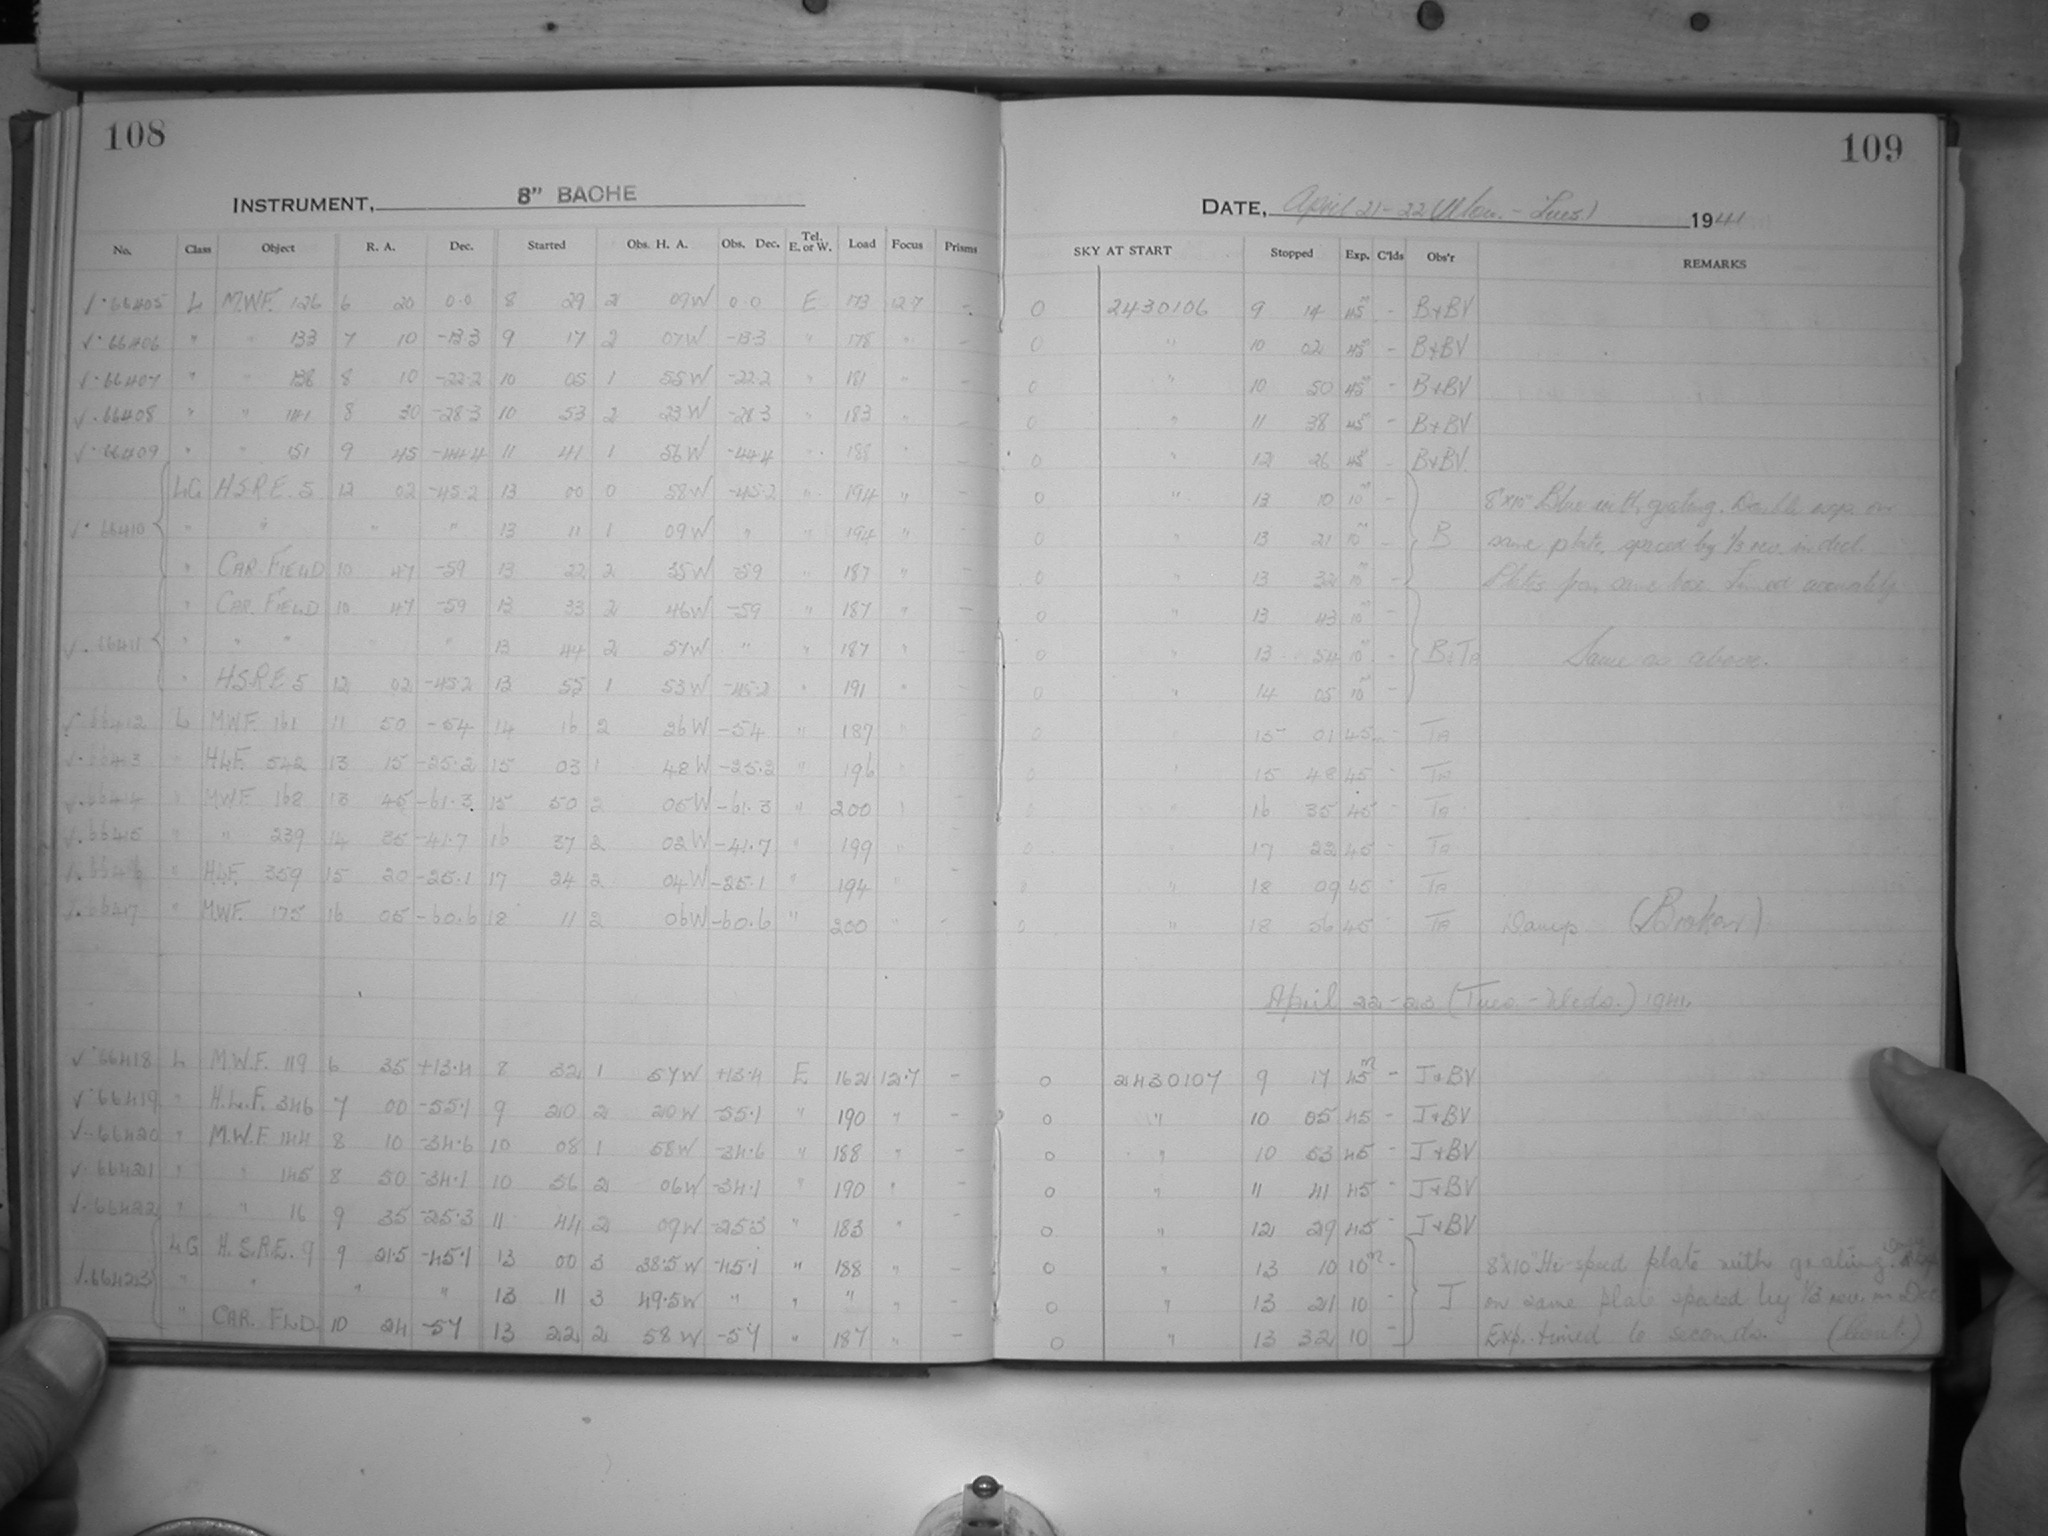 108
INSTRUMENT, 8" BACHE
No. Class Object R. A. Dec. Started Obs. H. A. Obs. Dec. Tel. E. or W. Load Focus Prisms
√·66405 L M.W.F. 126 6 20 0.0 8 29 2 09W 0.0 E 173 12.7 -
√·66406 " " 133 7 10 -13.3 9 17 2 07W -13.3 " 178 " -
√·66407 " " 138 8 10 -22.2 10 05 1 55W -22.2 " 181 " -
√·66408 " " 141 8 30 -28.3 10 53 2 23W -28.3 " 183 " -
√·66409 " " 151 9 45 -44.4 11 41 1 56W -44.4 " 188 " -
LG H.S.R.E. 5 12 02 -45.2 13 00 0 58W -45.2 " 194 " -
√·66410 " " " " 13 11 1 09W " " 194 " -
" CAR. FIELD 10 47 -59 13 22 2 35W -59 " 187 " -
" CAR. FIELD 10 47 -59 13 33 2 46W -59 " 187 " -
√·66411 " " " " " 13 44 2 57W " " 187 " -
" H.S.R.E 5 12 02 -45.2 13 55 1 53W -45.2 " 191 " -
√·66412 L MWF. 161 11 50 -54 14 16 2 26W -54 " 187 " -
√·66413 " H.L.F. 542 13 15 -25.2 15 03 1 48W -25.2 " 196 " -
√·66414 " MWF. 168 13 45 -61.3 15 50 2 05W -61.3 " 200 " -
√·66415 " " 239 14 35 -41.7 16 37 2 02W -41.7 " 199 " -
√·66416 " H.L.F. 359 15 20 -25.1 17 24 2 04W -25.1 " 194 " -
√·66417 " M.W.F. 175 16 05 -60.6 18 11 2 06W -60.6 " 200 " -
√·66418 L M.W.F. 119 6 35 +13.4 8 32 1 57W +13.4 E 162 12.7 -
√·66419 " H.L.F. 346 7 00 -55.1 9 20 2 20W -55.1 " 190 " -
√·66420 " M.W.F 144 8 10 -34.6 10 08 1 58W -34.6 " 188 " -
√·66421 " " 145 8 50 -34.1 10 56 2 06W -34.1 " 190 " -
√·66422 " " 16 9 35 -25.3 11 44 2 09W -25.3 " 183 " -
LG H.S.R.E. 9 9 21.5 -45.1 13 00 3 38.5W -45.1 " 188 " -
√·66423 " " " " 13 11 3 49.5W " " " " -
" CAR. FLD. 10 24 -57 13 22 2 58W -57 " 187 " -
109
DATE, April 21-22 (Mon. - Tues.) 1941
SKY AT START Stopped Exp. C'lds Obs'r REMARKS
0 2430106 9 14 45m - B+BV
0 " 10 02 45m - B+BV
0 " 10 50 45m - B+BV
0 " 11 38 45m - B+BV
0 " 12 26 45m - B+BV.
0 " 13 10 10m - 8"x10" Blue with grating. Double exp. on
0 " 13 21 10m - B same plate, spaced by 1/3 rev. in decl.
0 " 13 32 10m - Plates from same box. Timed accurately
0 " 13 43 10m -
0 " 13 54 10m - B+TA Same as above.
0 " 14 05 10m -
0 " 15 01 45m - TA
0 " 15 48 45 - TA
0 " 16 35 45 - TA
0 " 17 22 45 - TA
0 " 18 09 45 - TA
0 " 18 56 45 - TA Damp (Broken)
April 22-23 (Tues. - Weds.) 1941.
0 2430107 9 17 45m - J+BV
0 " 10 05 45 - J+BV
0 " 10 53 45 - J+BV
0 " 11 41 45 - J+BV
0 " 12 29 45 - J+BV
0 " 13 10 10m - 8"x10" Hi-speed plate with grating.
0 " 13 21 10 - J on same plate spaced by 1/3 rev. in Dec
0 " 13 32 10 - Exp. timed to seconds. (Cont.)